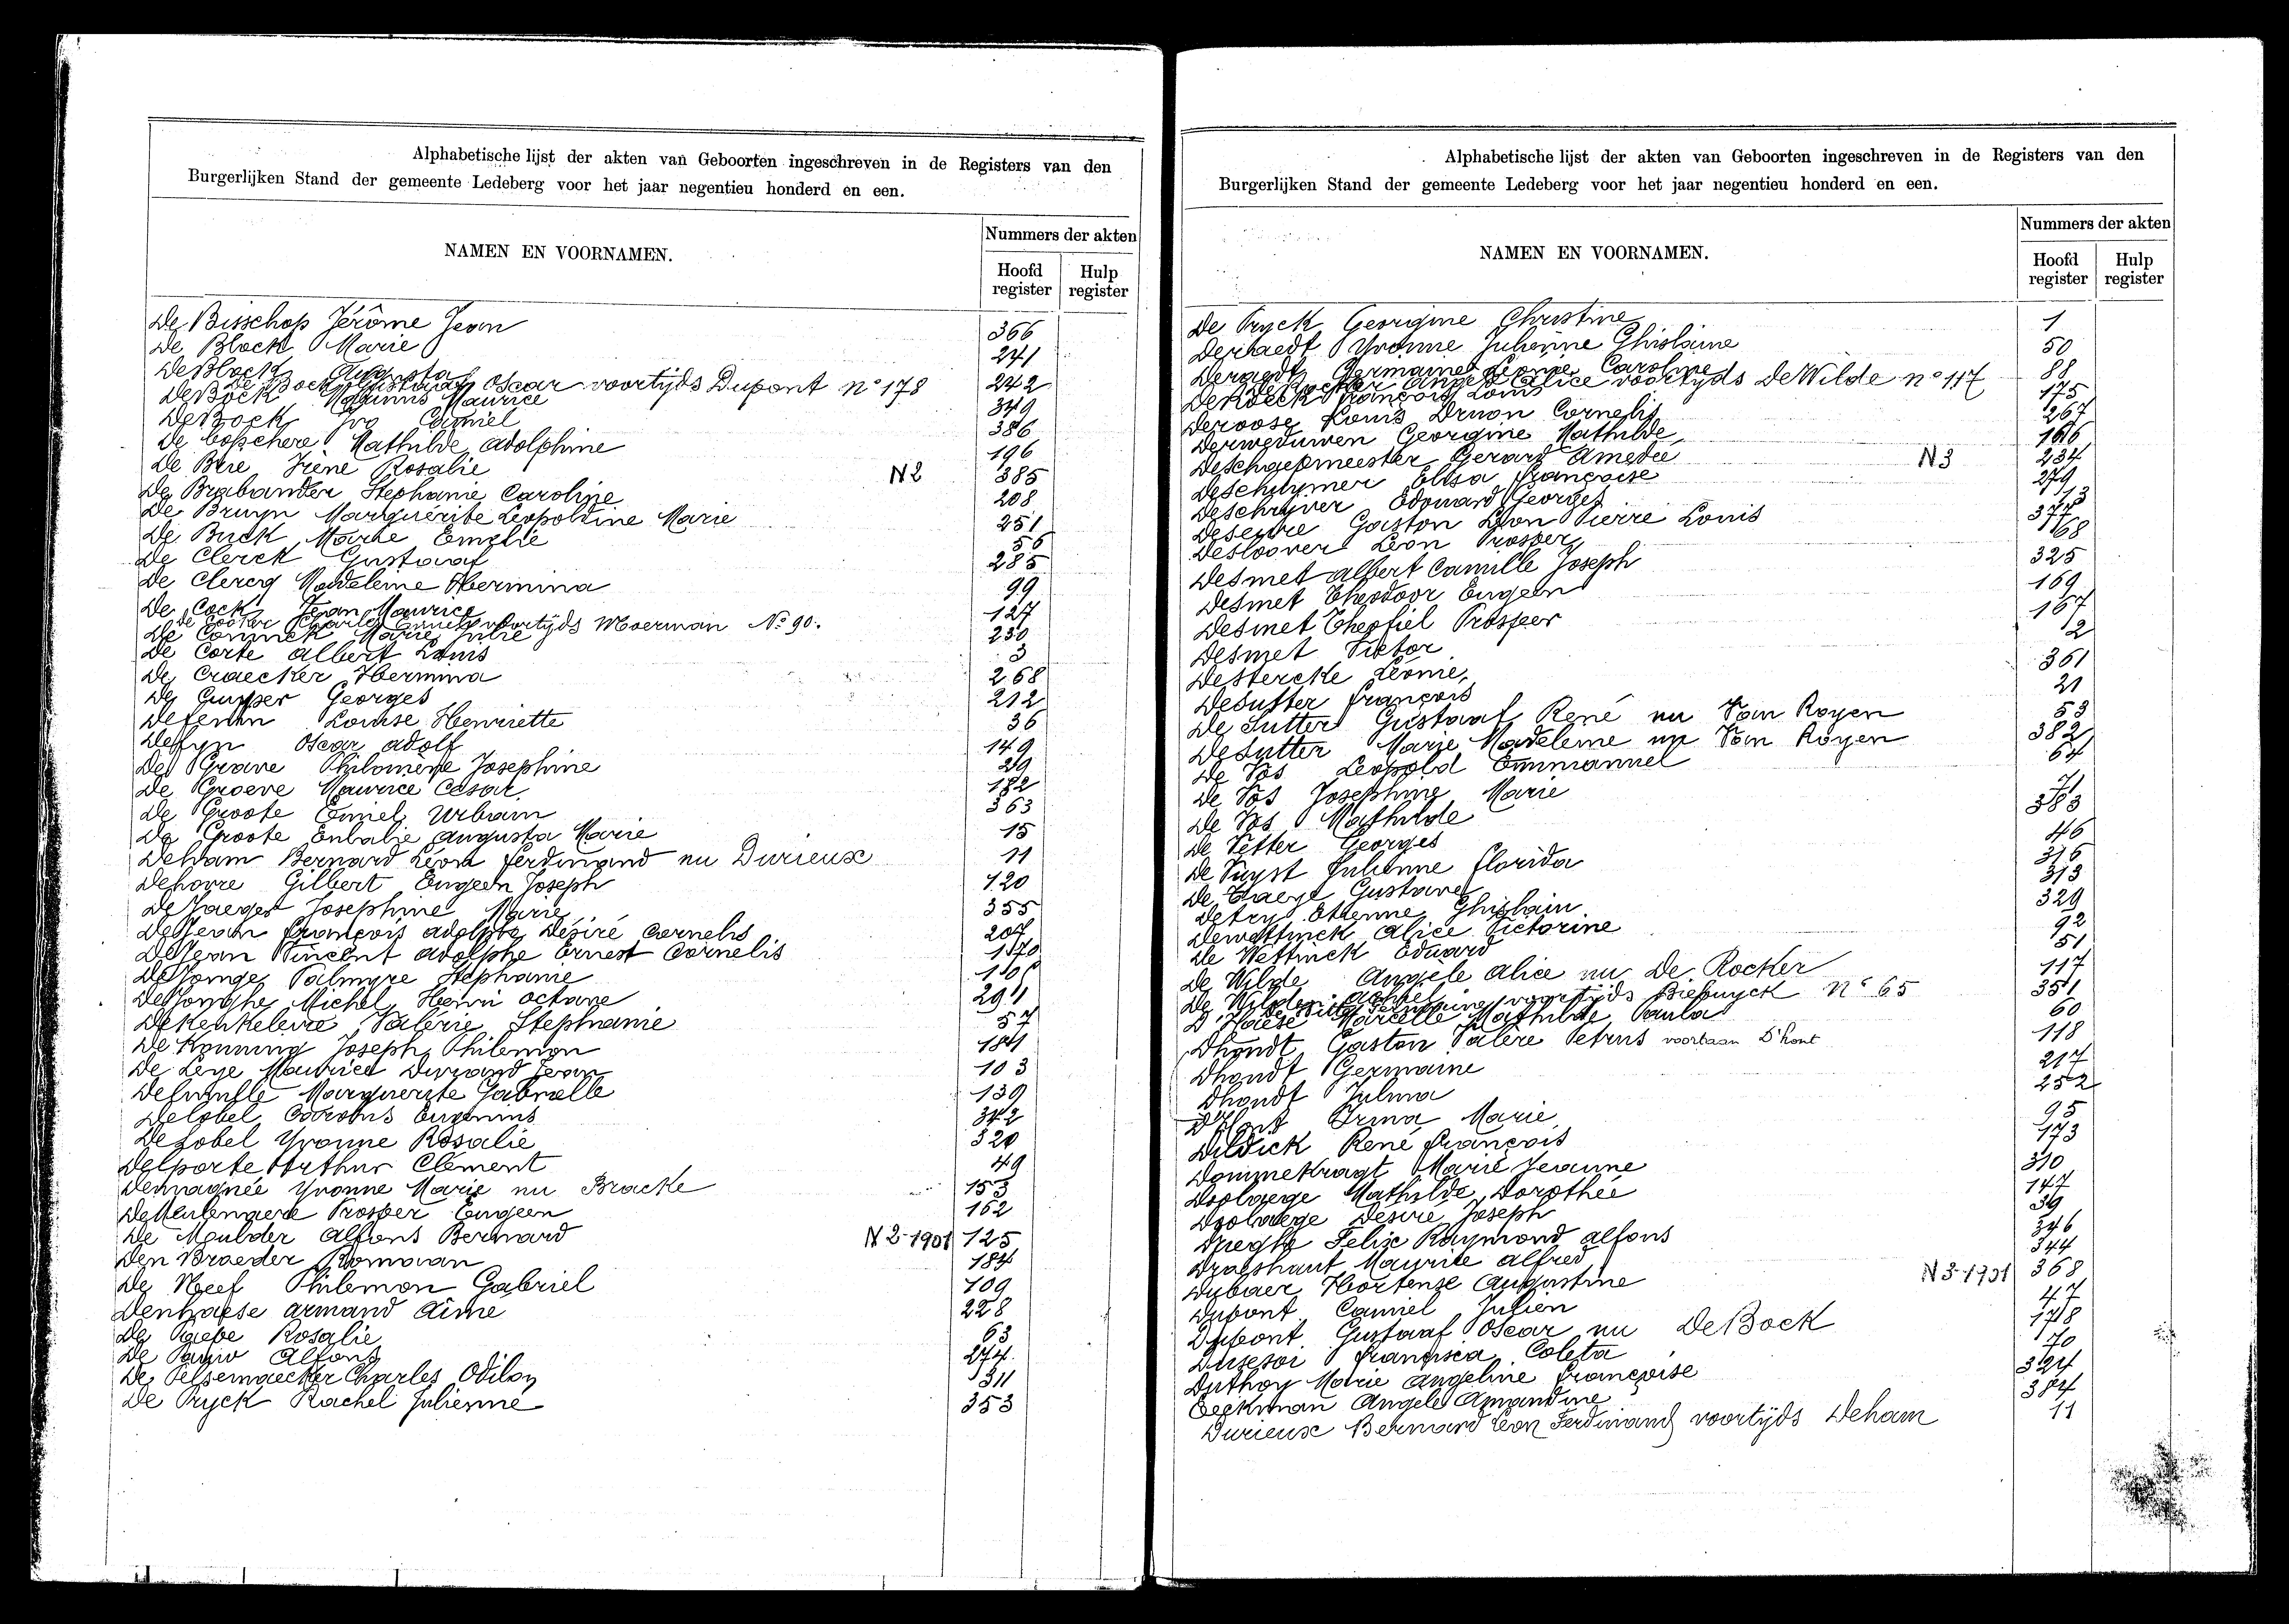 Alphabetische lijst der akten van Geboorten ingeschreven in de Registers van den
Burgerlijken Stand der gemeente Ledeberg voor het jaar negentieu honderd en een.
NAMEN EN VOORNAMEN.
Nummers der akten
Hoofd register
Hulp register
De Bisschop Jérôme Jean 366
De Block Marie 241
De Block Augusta 242
De Bock Gustaaf Oscar voortijds Dupont n° 178
De Bock Maurice 349
De Bock Ivo Camiel 386
De Bosschere Mathilde Adolphine 196
De Bre Irène Rosalie N2 385
De Brabander Stephanie Caroline 208
De Bruyn Marguerite Leopoldine Marie 251
De Buck Marie Emelie 56
De Clerck Gustaaf 285
De Clercq Madeleine Hermina 99
De Cock Jean Maurice 127
De Cooker Charles voortijds Moerman N° 90.
De Coninck Marie Julie 230
De Corte Albert Louis 3
De Craecker Hermina 268
De Cuyper Georges 212
Louise Henriette 36
Defyn Oscar Adolf 149
De Grave Philomène Josephine 29
De Groeve Maurice Cesar 182
De Groote Emiel Urbain 363
De Groote Eulalie Augusta Marie 15
Deham Bernard Léon Ferdinand nu Durieux 11
Dehovre Gilbert Eugeen Joseph 120
De Jaeger Josephine Marie 355
De Jean François Adolphe Désiré Cornelis 204
De Jean Vincent Adolphe Ernest Cornelis
De Jonge Palmyre Stephanie
De Jonghe Michel Henri Octave 291
Dekeukeleire Valérie Stephanie 57
De Koninng Joseph Philemon 184
De Leye Maurice Durand Jean 103
Marguerite Gabrielle 139
Delobel Eugenius 342
Delobel Yvonne Rosalie 320
Delporte Arthur Clément 49
Demagnée Yvonne Marie nu Bracke 153
De Meulenaere Prosper Eugeen 162
De Meulder Alfons Bernard N 2-1901 125
Den Braeder Romaan 184
De Neef Philemon Gabriel 109
Denhaese Armand Aimé 228
De Paepe Rosalie 63
De Pauw Alfons 274
De Pelsemaecker Charles Odilon 311
De Pryck Rachel Julienne 353
Alphabetische lijst der akten van Geboorten ingeschreven in de Registers van den
Burgerlijken Stand der gemeente Ledeberg voor het jaar negentieu honderd en een.
NAMEN EN VOORNAMEN.
Nummers der akten
Hoofd register
Hulp register
De Pryck Georgine Christine 1
Deraedt Yvonne Julienne Ghislaine 50
Deraedt Germaine Leonie Caroline 88
De Rocker Angèle Alice voortyds De Wilde n° 117
De Roeck François Louis 175
Deroose Louis Druon Cornelis 267
Derweduwen Georgine Mathilde 166
Deschaepmeester Gerard Amedée N3 234
Elisa Françoise 279
Deschryver Edouard Georges 13
Gaston Léon Pierre Louis 377
Desloover Léon Prosper 168
Desmet Albert Camille Joseph 325
Desmet Theodoor Eugeen 169
Desmet Theofiel Prosper 167
Desmet Victor 2
Destercke Léonie 361
Desutter François 21
De Sutter Gustaaf René nu Van Royen 53
Desutter Marie Madeleine nu Van Royen 382
De Vos Leopold Emmanuel 64
De Vos Josephine Marie 71
De Vos Mathilde 383
De Vetter Georges 46
De Vuyst Julienne Florida 316
Gustave 313
Detry Etienne Ghislain 329
Dewettinck Alice Victorine 92
De Wettinck Eduard 151
De Wilde Angèle Alice nu De Rocker 117
De Wilde Rachel 351
voortijds Biebuyck n° 65
D'Haese Marcelle Mathilde Paula 60
Dhondt Gaston Valère Petrus voortaan D'hont 118
Dhondt Germaine 217
Dhondt Julma 252
D'Hont Irma Marie 95
Dildick René François 173
Dommekragt Marie Jeanne 310
Doolaege Mathilde Dorothée 147
Doolaege Désiré Joseph 39
Felix Raymond Alfons 346
Maurice Alfred 344
Dubaer Hortense Augustine N 3-1901 368
Dupont Camiel Julien 47
Dupont Gustaaf Oscar nu De Bock 178
Francisca Coleta 70
Duthoy Marie Angeline Françoise 324
Eeckman Angele Amandine 384
Durieux Bernard Léon Ferdinand voortijds Deham 11